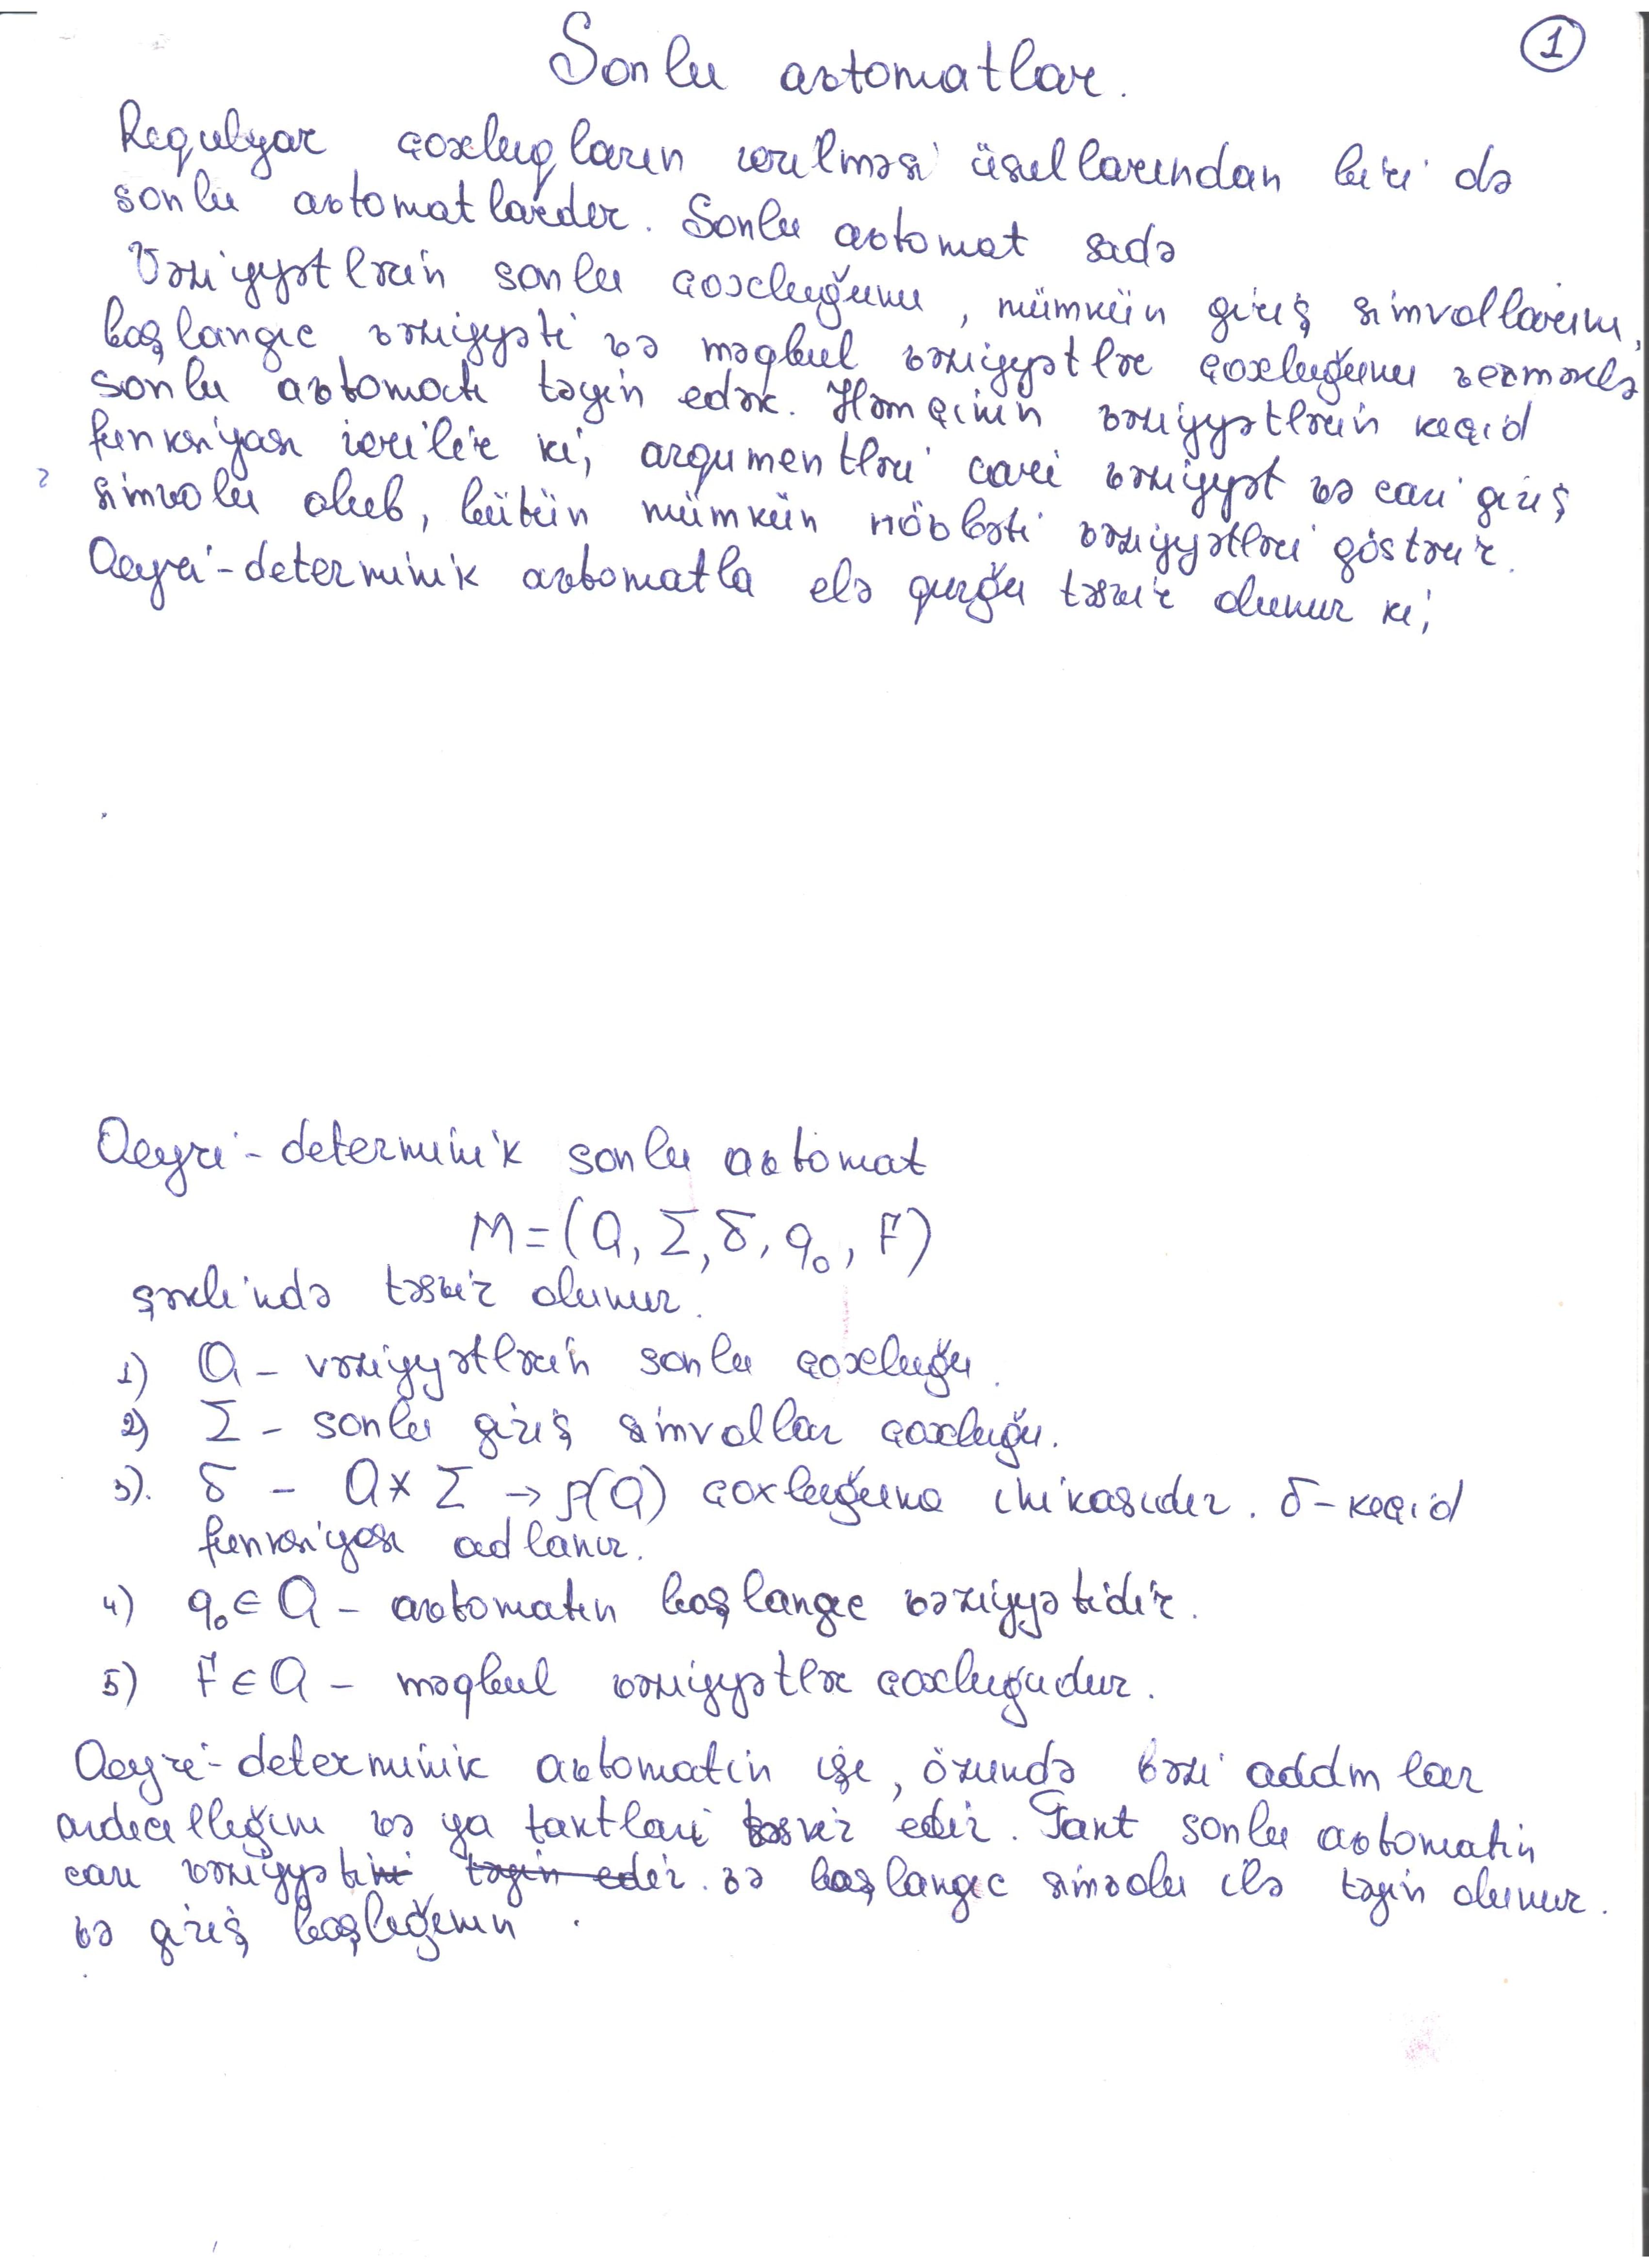 1
Sonlu avtomatlar.
Requlyar çoxluqların verilməsi üsullarından biri də
sonlu avtomatlardır. Sonlu avtomat sadə
Vəziyyətlərin sonlu çoxluğunu, mümkün giriş simvollarını,
başlangıc vəziyyəti və məqbul vəziyyətlər çoxluğunu verməklə
sonlu avtomatı təyin edək. Həmçinin vəziyyətlərin keçid
funksiyası verilir ki, argumentləri cari vəziyyət və cari giriş
simvolu olub, bütün mümkün növbəti vəziyyətləri göstərir.
Qeyri-determinik avtomatla elə qurğu təsvir olunur ki,
Qeyri-determinik sonlu avtomat
M=(Q, Σ, δ, q₀, F)
şəklində təsvir olunur.
1) Q - vəziyyətlərin sonlu çoxluğu.
2) Σ - sonlu giriş simvollar çoxluğu.
3). δ - Q × Σ → P(Q) çoxluğuna inikasıdır. δ-keçid
funksiyası adlanır.
4) q₀ ∈ Q - avtomatın başlangıc vəziyyətidir.
5) F ∈ Q - məqbul vəziyyətlər çoxluğudur.
Qeyri-determinik avtomatın işi, özündə bəzi addmlar
ardıcıllığını və ya taktları təsvir edir. Takt sonlu avtomatın
cari vəziyyəti təyin edir. və başlangıc simvolu ilə təyin olunur.
və giriş başlığının